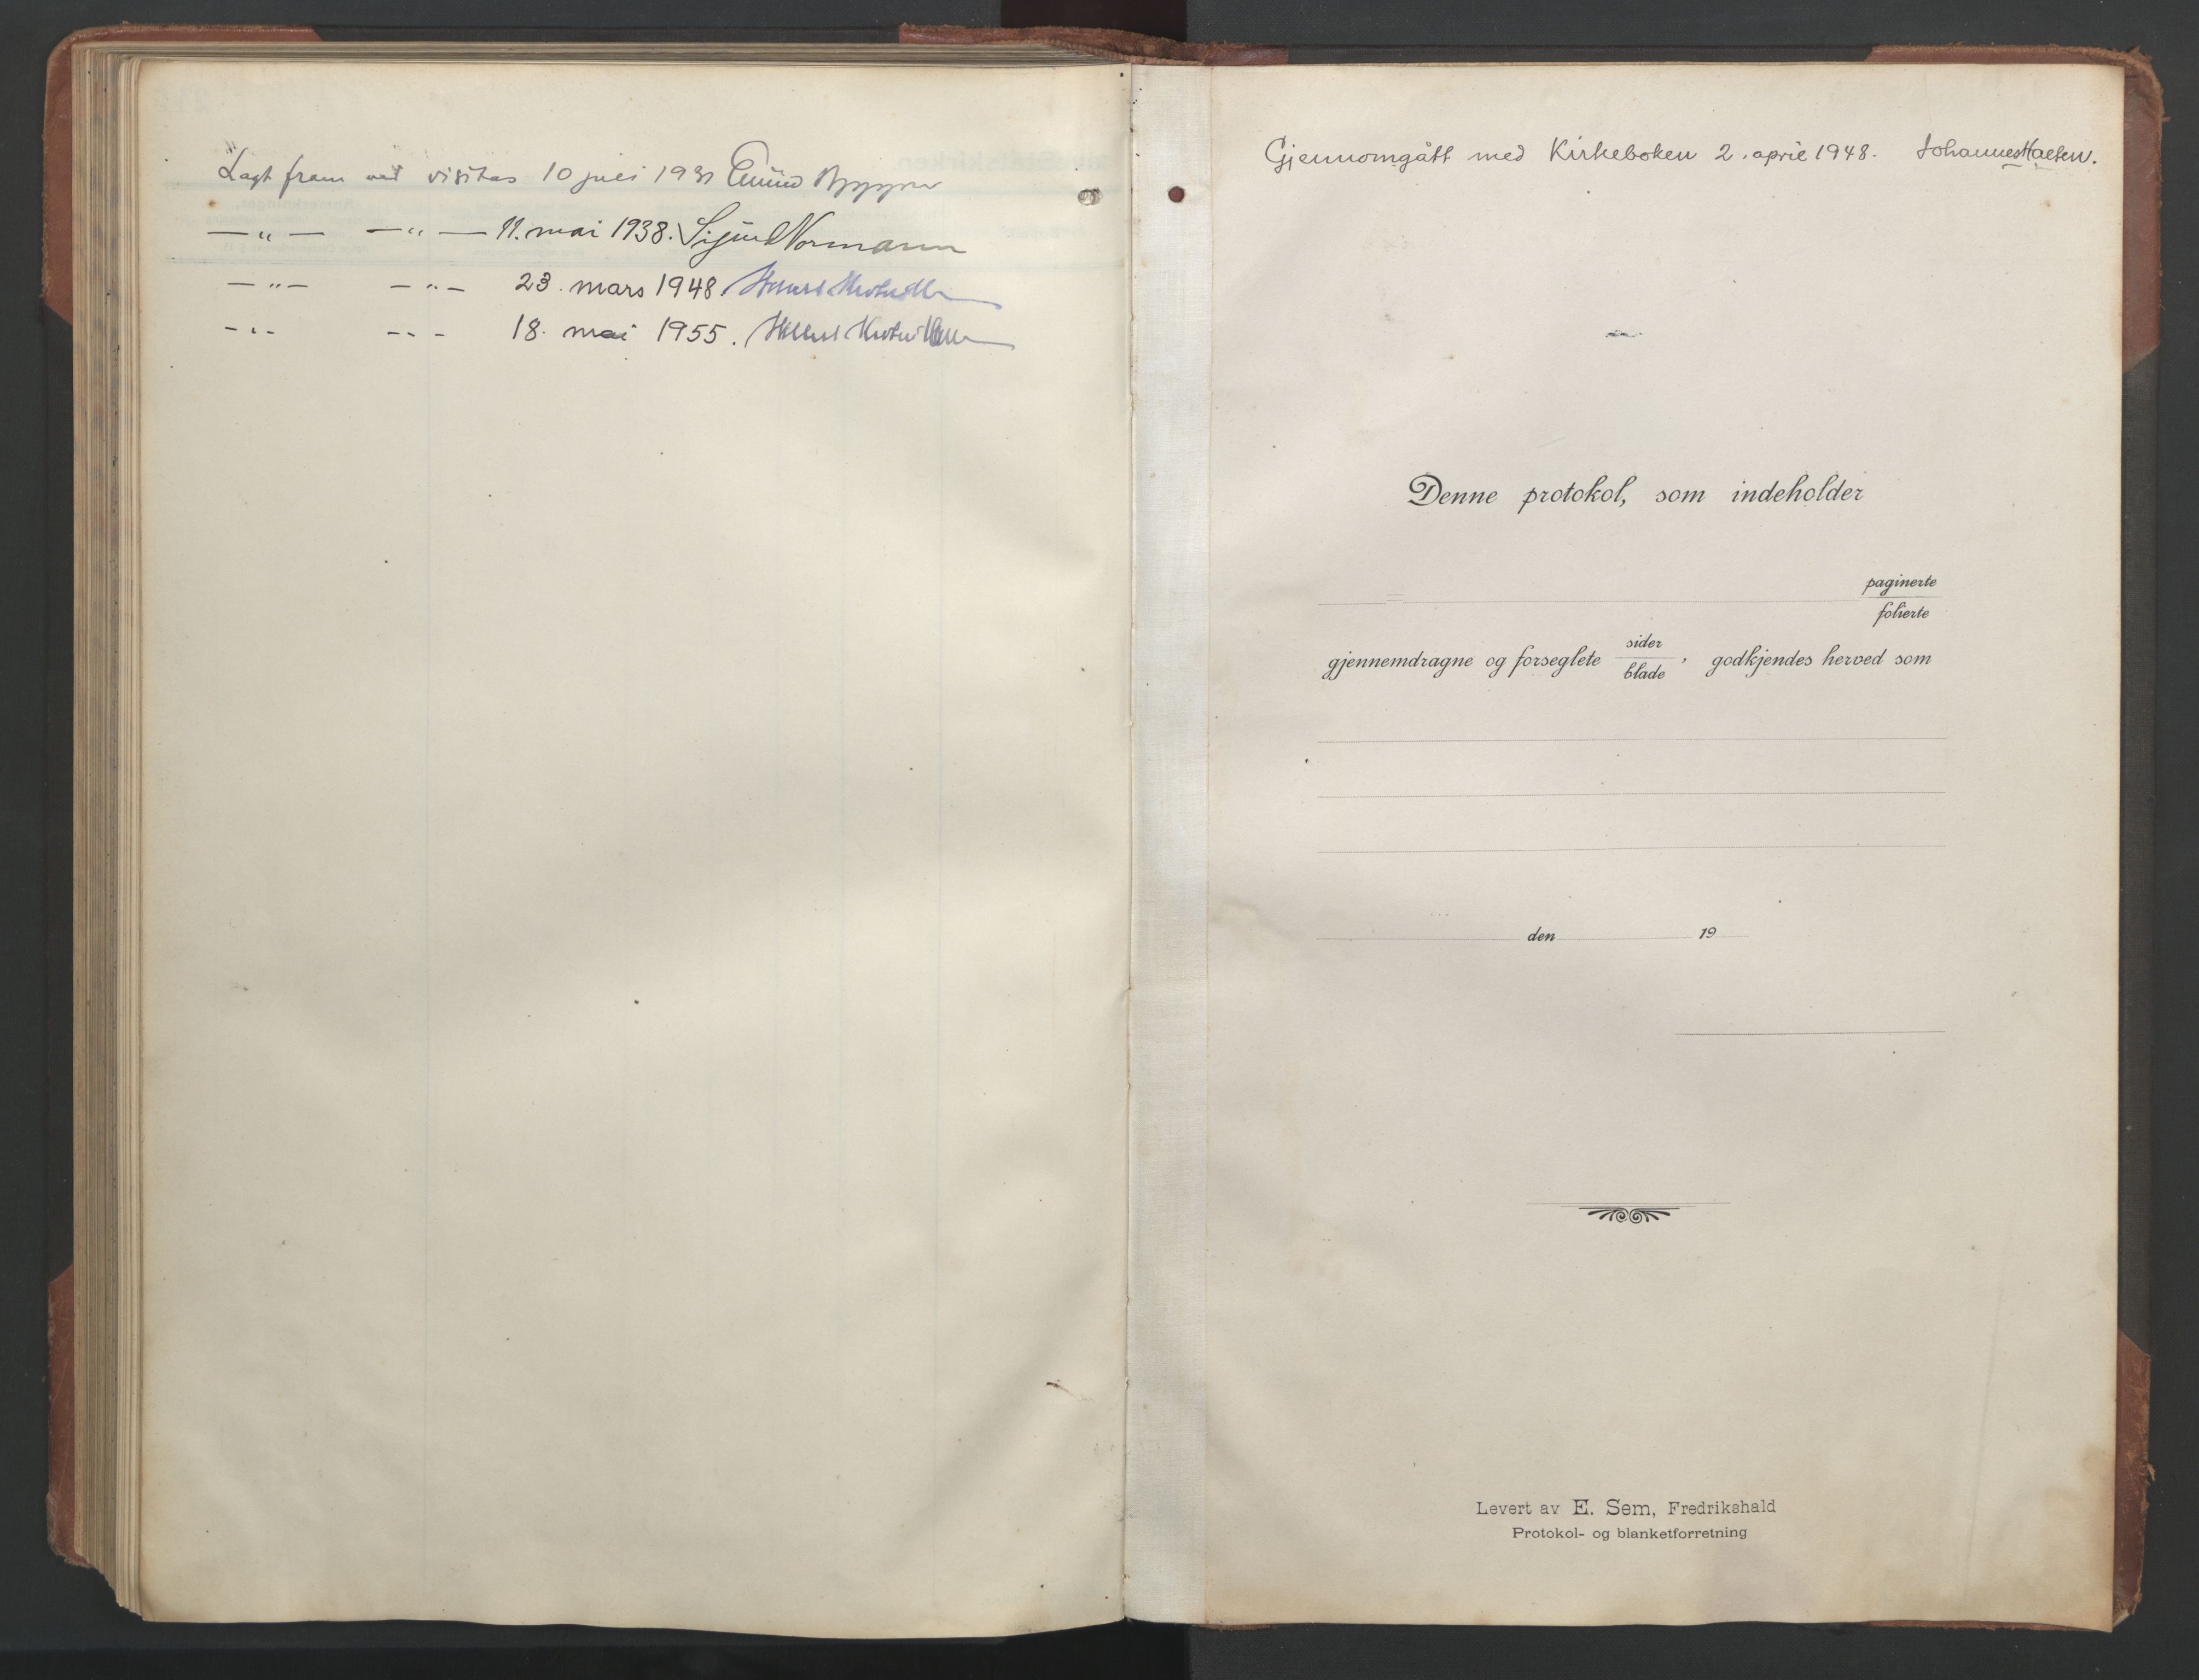 Lagt fram ved visitas 10 juli 1931
— " — — " — 11. mai 1938. Sigurd Normann
— " — — " — 23. mars 1948.
— " — — " — 18. mai 1955.
Gjennomgått med Kirkeboken 2. april 1948. Johannes Halsen.
Denne protokol, som indeholder
paginerte
folierte
gjennemdragne og forseglete sider
blade , godkjendes herved som
den 19
Levert av E. Sem, Fredrikshald
Protokol- og blanketforretning